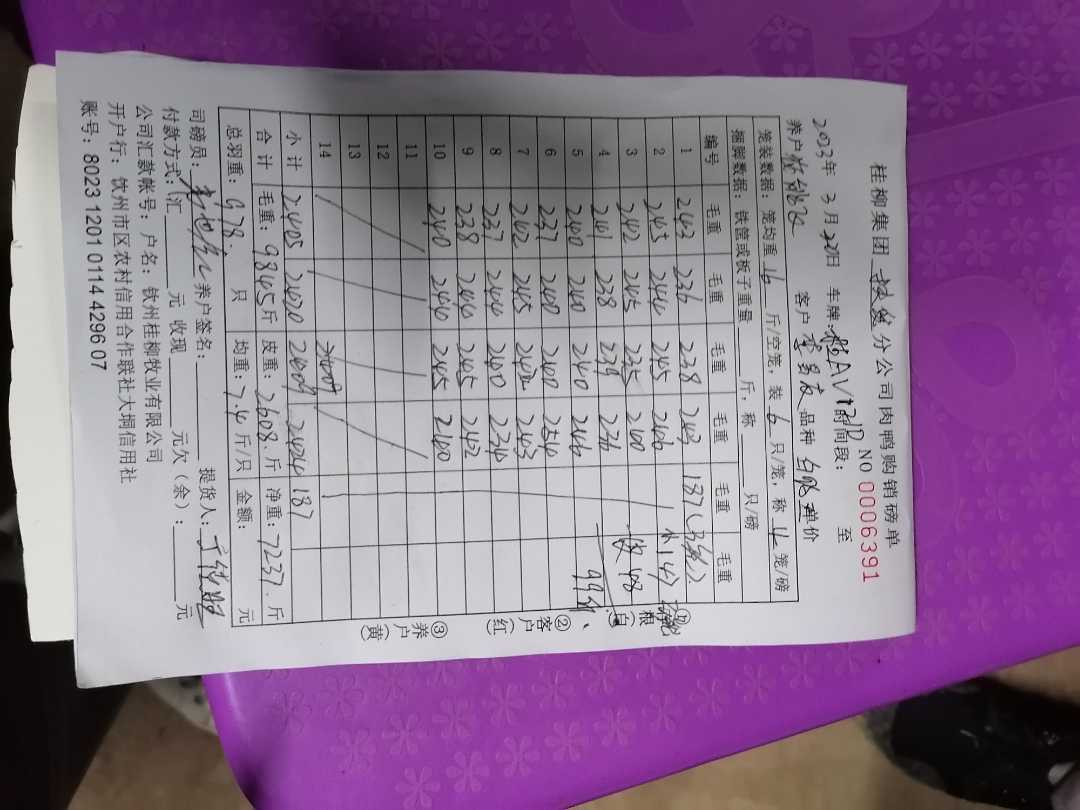 桂柳集团 分公司肉鸭购销磅单
NO 0006391
2023年 3月20日 车牌: 桂AV 时间段: 至
养户 客户 李易友 品种 单价
笼装数据: 笼均重 16 斤/空笼, 装 6 只/笼, 称 4 笼/磅
捆脚数据: 铁管或板子重量 斤, 称 只/磅
编号 毛重 毛重 毛重 毛重 毛重 毛重
1 243 236 238 243 187
2 245 244 245 246
3 242 245 235 240
4 241 238 239 236
5 240 240 240 246
6 237 240 240 254
7 242 245 242 243
8 237 244 240 234
9 238 244 245 242
10 240 244 245 240
11
12
13
14
小计 2405 2420 2409 2424 187
合计 毛重: 9845 斤 皮重: 2608. 斤 净重: 7237. 斤
总羽重: 978. 只 均重: 7.4 斤/只 金额: 元
司磅员: 养户签名: 提货人:
付款方式: (汇 元 收现 元欠(余): 元
公司汇款帐号: 户名: 钦州桂柳牧业有限公司
开户行: 钦州市区农村信用合作联社大垌信用社
账号: 8023 1201 0114 4296 07
② 客户 (红)
③ 养户 (黄)